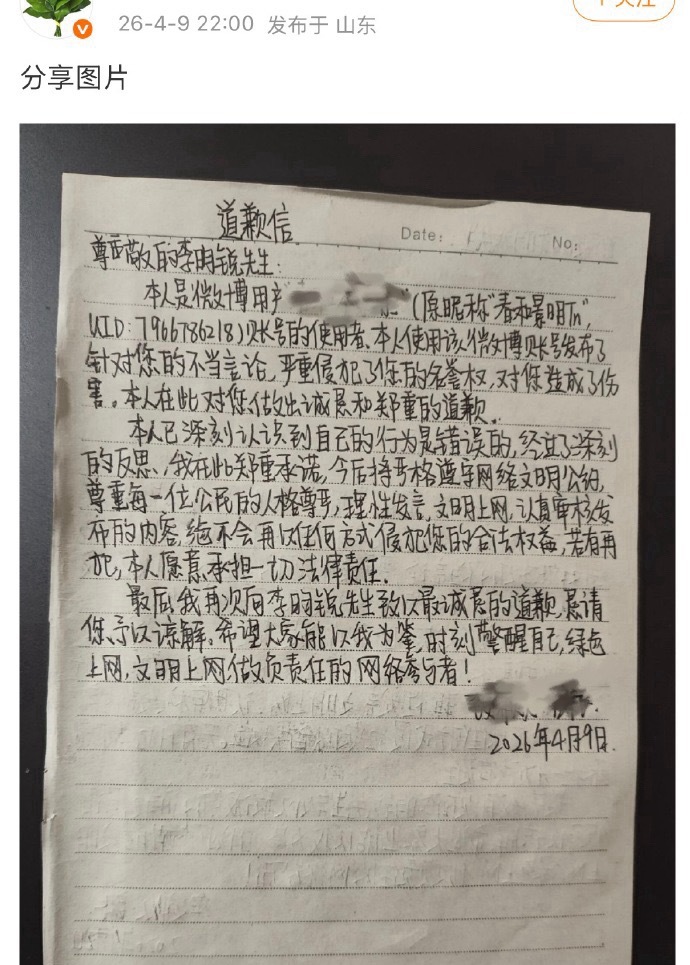 26-4-9 22:00 发布于 山东
分享图片
道歉信
Date:
No:
尊敬的李昀锐先生:
本人是微博用户" "(原昵称"春和景明Tn",
UID:7966786218)账号的使用者,本人使用该微博账号发布了
针对您的不当言论,严重侵犯了您的名誉权,对您造成了伤
害。本人在此对您做出诚恳和郑重的道歉。
本人已深刻认识到自己的行为是错误的,经过了深刻
的反思,我在此郑重承诺,今后将严格遵守网络文明公约,
尊重每一位公民的人格尊严,理性发言,文明上网,认真审核发
布的内容,绝不会再以任何方式侵犯您的合法权益,若有再
犯,本人愿意承担一切法律责任.
最后,我再次向李昀锐先生致以最诚恳的道歉,恳请
您予以谅解。希望大家能以我为鉴,时刻警醒自己,绿色
上网,文明上网,做负责任的网络参与者!
2026年4月9日.